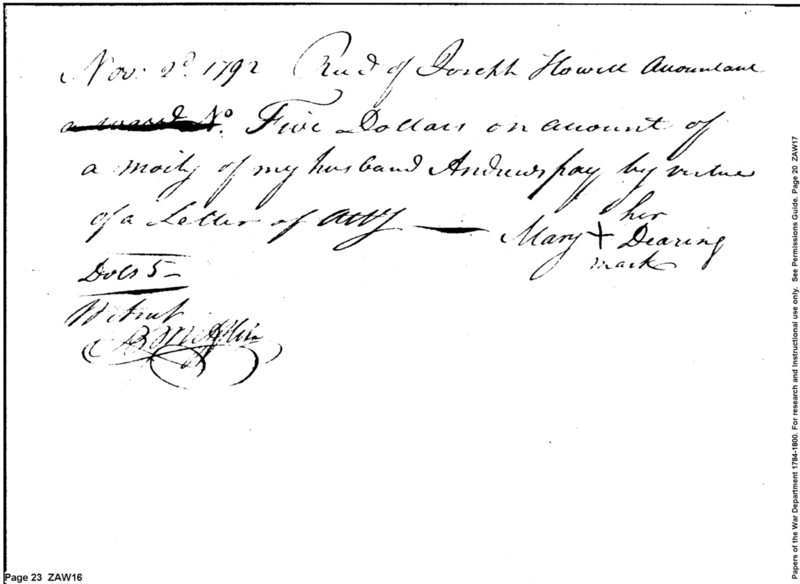 Nov: 2d. 1792 Recd of Joseph Howell Accountant
No. Five Dollars on account of
a moity of my husband Andrews pay by virtue
of a Letter of Atty — Mary + Dearing
her
mark
Dols 5 –
Witness
B Mifflin
Page 23 ZAW16
Papers of the War Department 1784-1800. For research and instructional use only. See Permissions Guide. Page 20 ZAW17